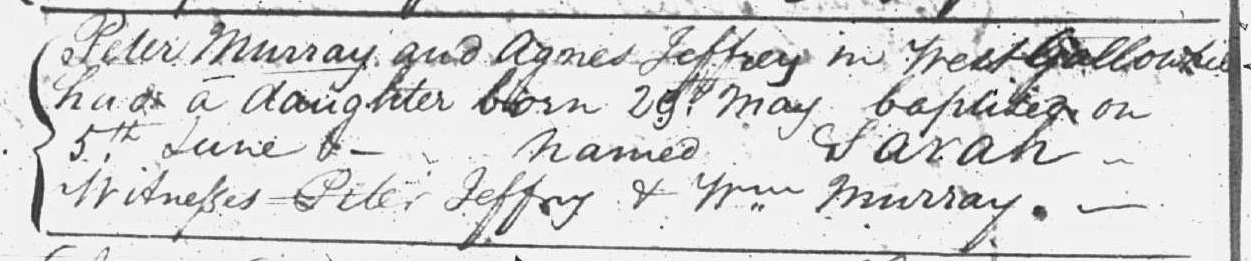 Peter Murray and Agnes Jeffrey in West
had a daughter born 29th May baptized on
5th June & – named Sarah –
Witnesses – Peter Jeffry & Wm Murray. –